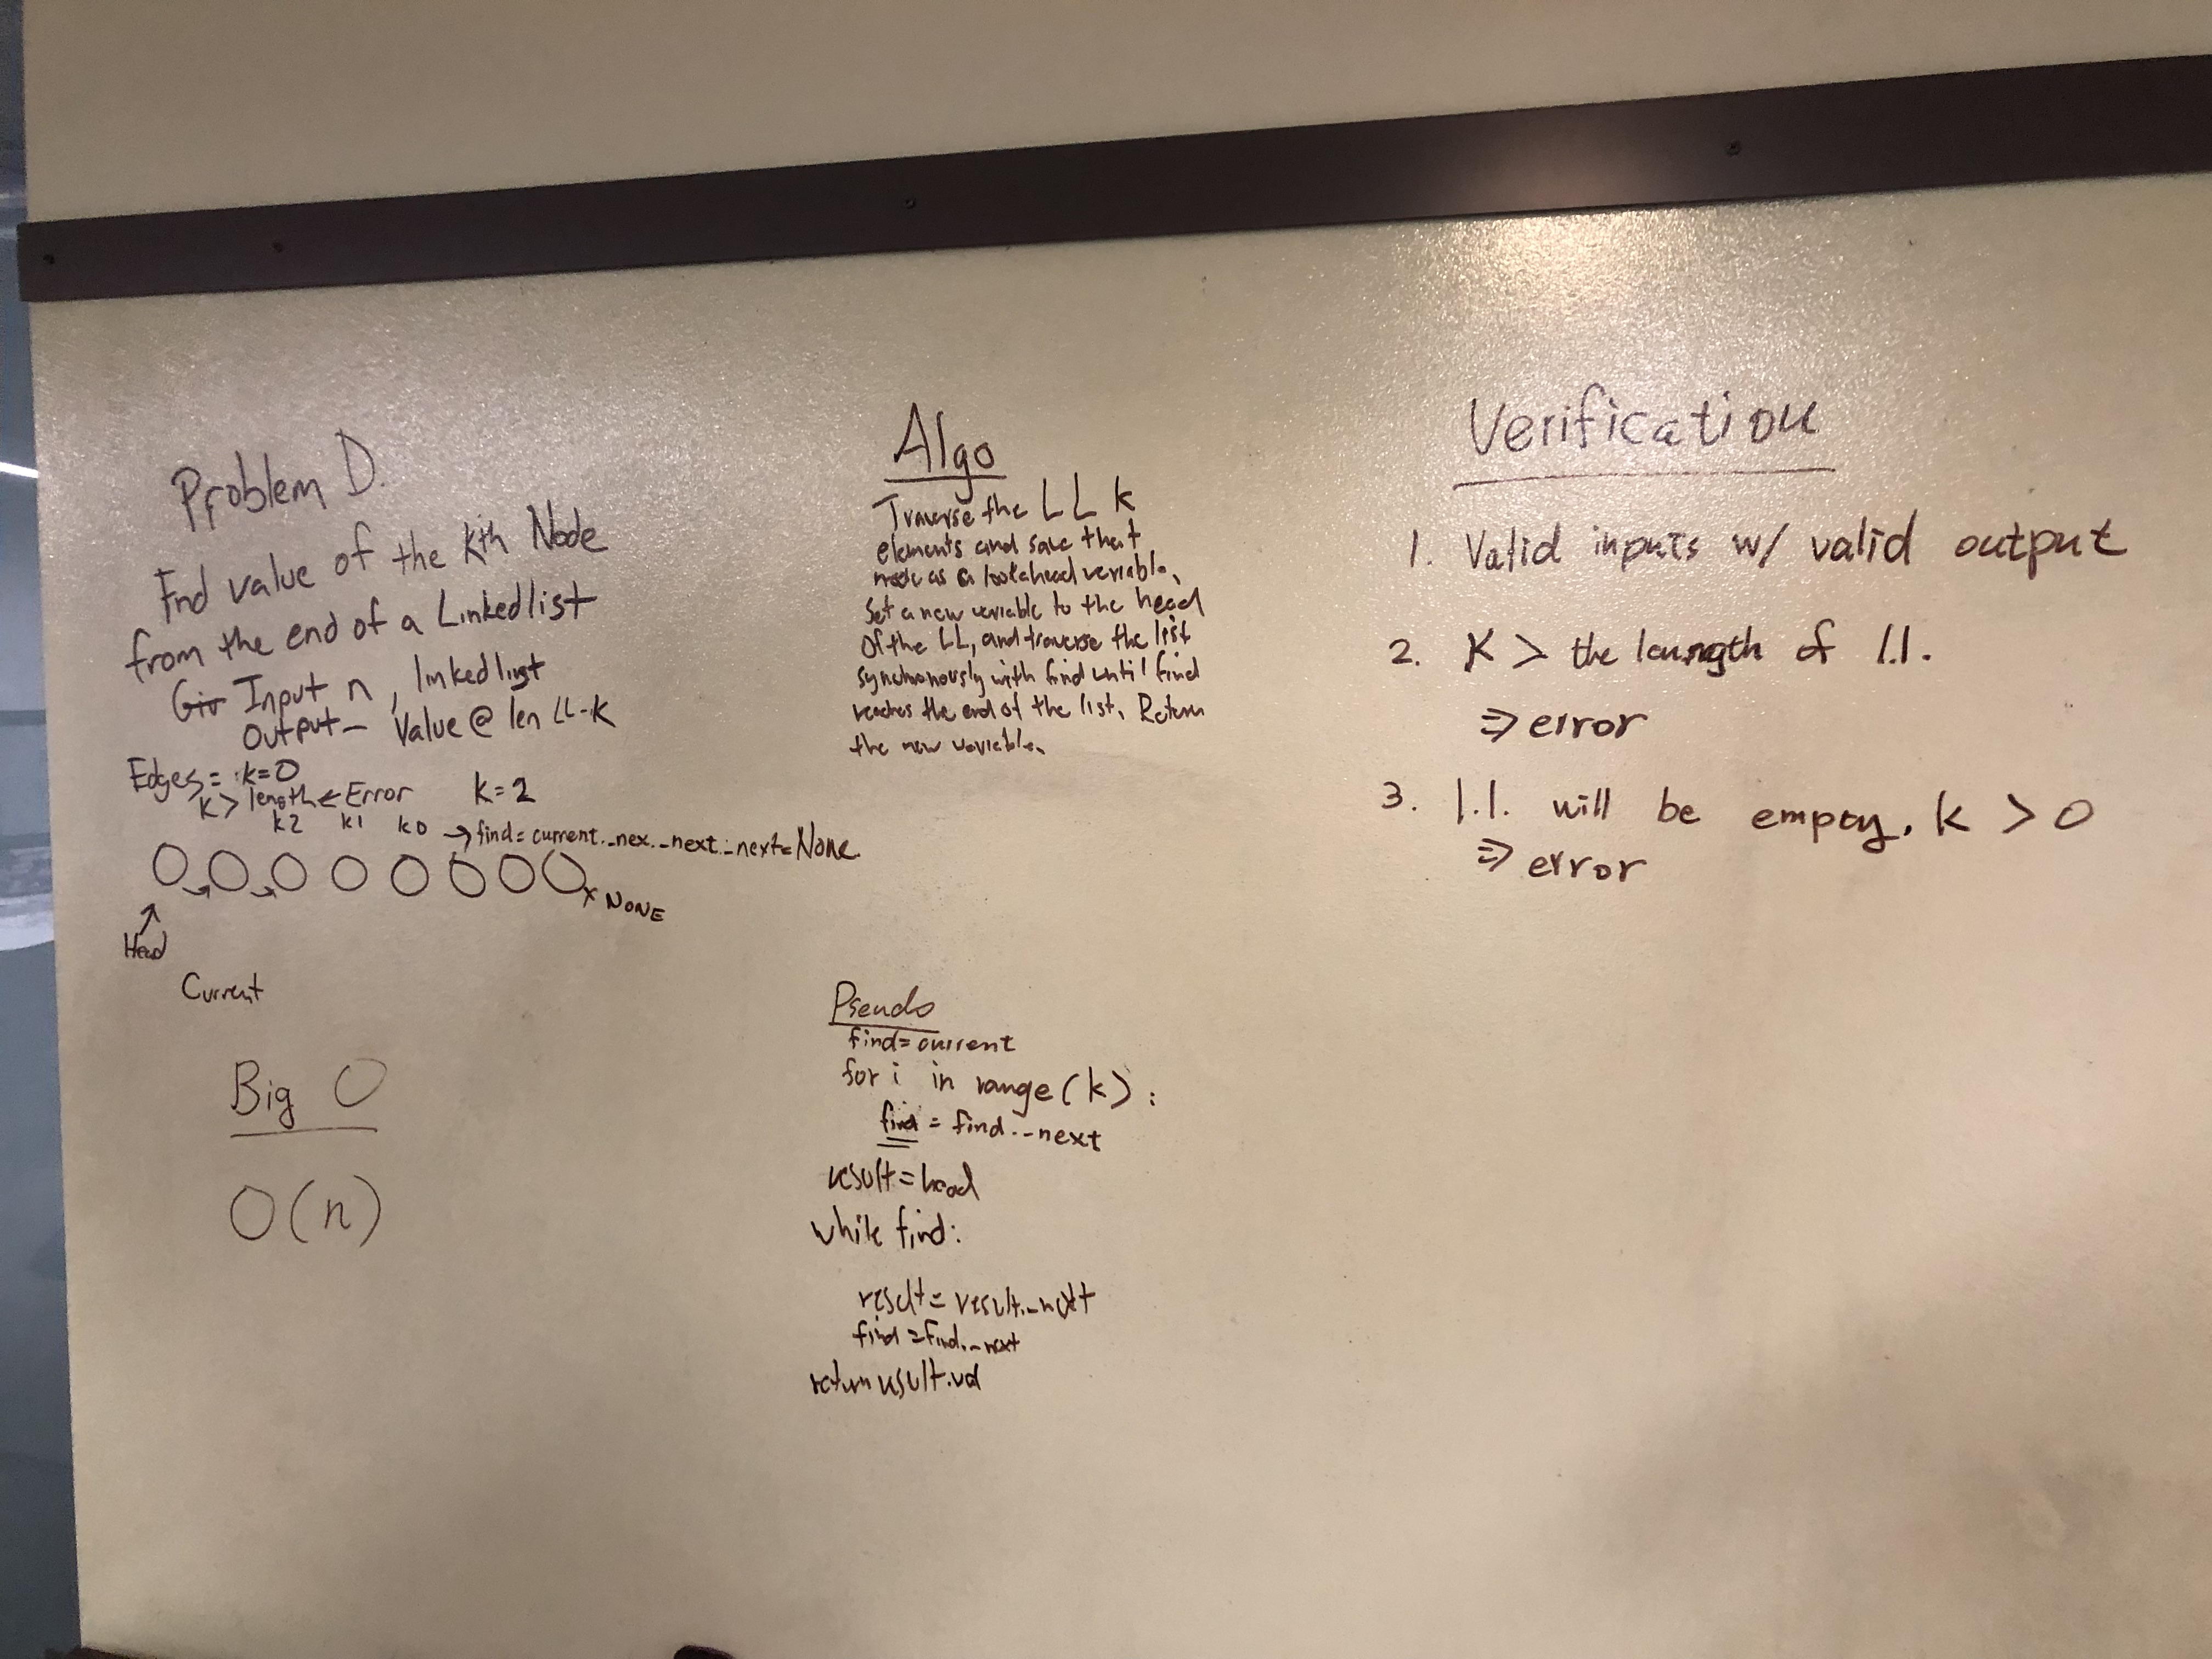 Problem D.
Find value of the kth Node
from the end of a Linkedlist
Giv Input n, linked list
Output - Value @ len LL-k
Edges = k=0
k > length ← Error k=2
k2 k1 k0 → find = current._nex._next._next = None.
X NONE
Head
Current
Big O
O(n)
Algo
Traverse the LL k
elements and save that
node as a lookahead variable.
Set a new variable to the head
of the LL, and traverse the list
synchronously with find until find
reaches the end of the list. Return
the new variable.
Pseudo
find = current
for i in range(k):
find = find._next
result = head
while find:
result = result._next
find = find._next
return result.val
Verification
1. Valid inputs w/ valid output
2. K > the length of l.l.
⇒ error
3. l.l. will be empty. k > 0
⇒ error